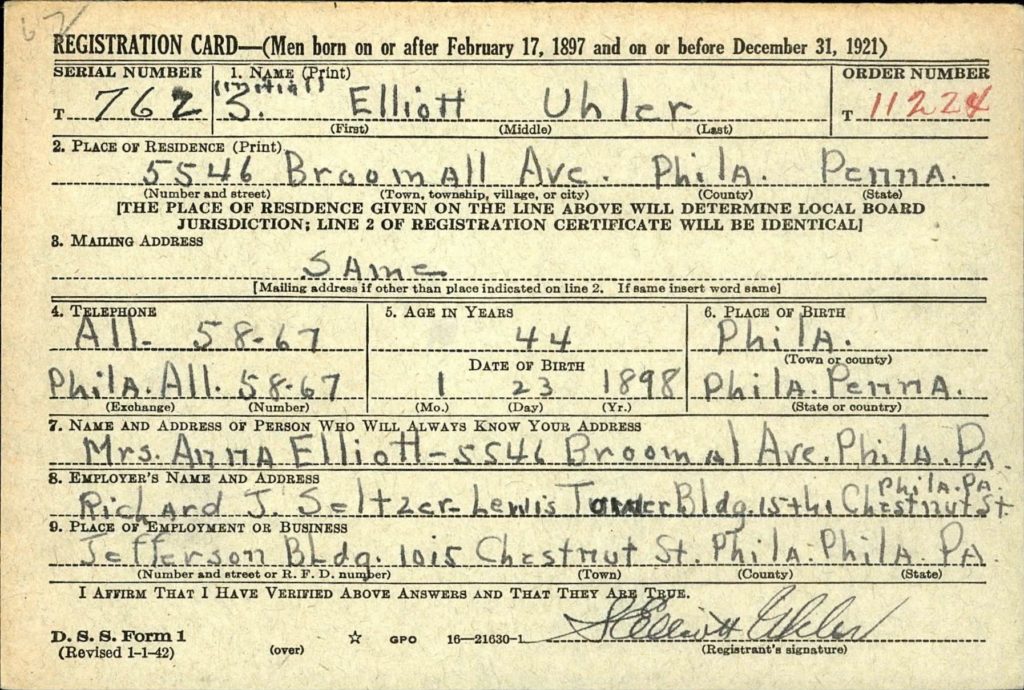 62
REGISTRATION CARD—(Men born on or after February 17, 1897 and on or before December 31, 1921)
SERIAL NUMBER 1. NAME (Print) ORDER NUMBER
T 762 (initial) S. Elliott Uhler T 11224
(First) (Middle) (Last)
2. PLACE OF RESIDENCE (Print)
5546 Broomall Ave. Phila. Penna.
(Number and street) (Town, township, village, or city) (County) (State)
[THE PLACE OF RESIDENCE GIVEN ON THE LINE ABOVE WILL DETERMINE LOCAL BOARD
JURISDICTION; LINE 2 OF REGISTRATION CERTIFICATE WILL BE IDENTICAL]
3. MAILING ADDRESS
SAme
[Mailing address if other than place indicated on line 2. If same insert word same]
4. TELEPHONE 5. AGE IN YEARS 6. PLACE OF BIRTH
All. 58-67 44 Phila.
DATE OF BIRTH (Town or county)
Phila. All. 58-67 1 23 1898 Phila. Penna.
(Exchange) (Number) (Mo.) (Day) (Yr.) (State or country)
7. NAME AND ADDRESS OF PERSON WHO WILL ALWAYS KNOW YOUR ADDRESS
Mrs. Anna Elliott-5546 Broomal Ave. Phila. Pa.
8. EMPLOYER'S NAME AND ADDRESS
Phila. Pa.
Richard J. Seltzer-Lewis Tower Bldg. 15th Chestnut St
9. PLACE OF EMPLOYMENT OR BUSINESS
Jefferson Bldg. 1015 Chestnut St. Phila. Phila. Pa.
(Number and street or R. F. D. number) (Town) (County) (State)
I AFFIRM THAT I HAVE VERIFIED ABOVE ANSWERS AND THAT THEY ARE TRUE.
S Elliott Uhler
D. S. S. Form 1 GPO 16—21630-1
(Revised 1-1-42) (over) (Registrant's signature)